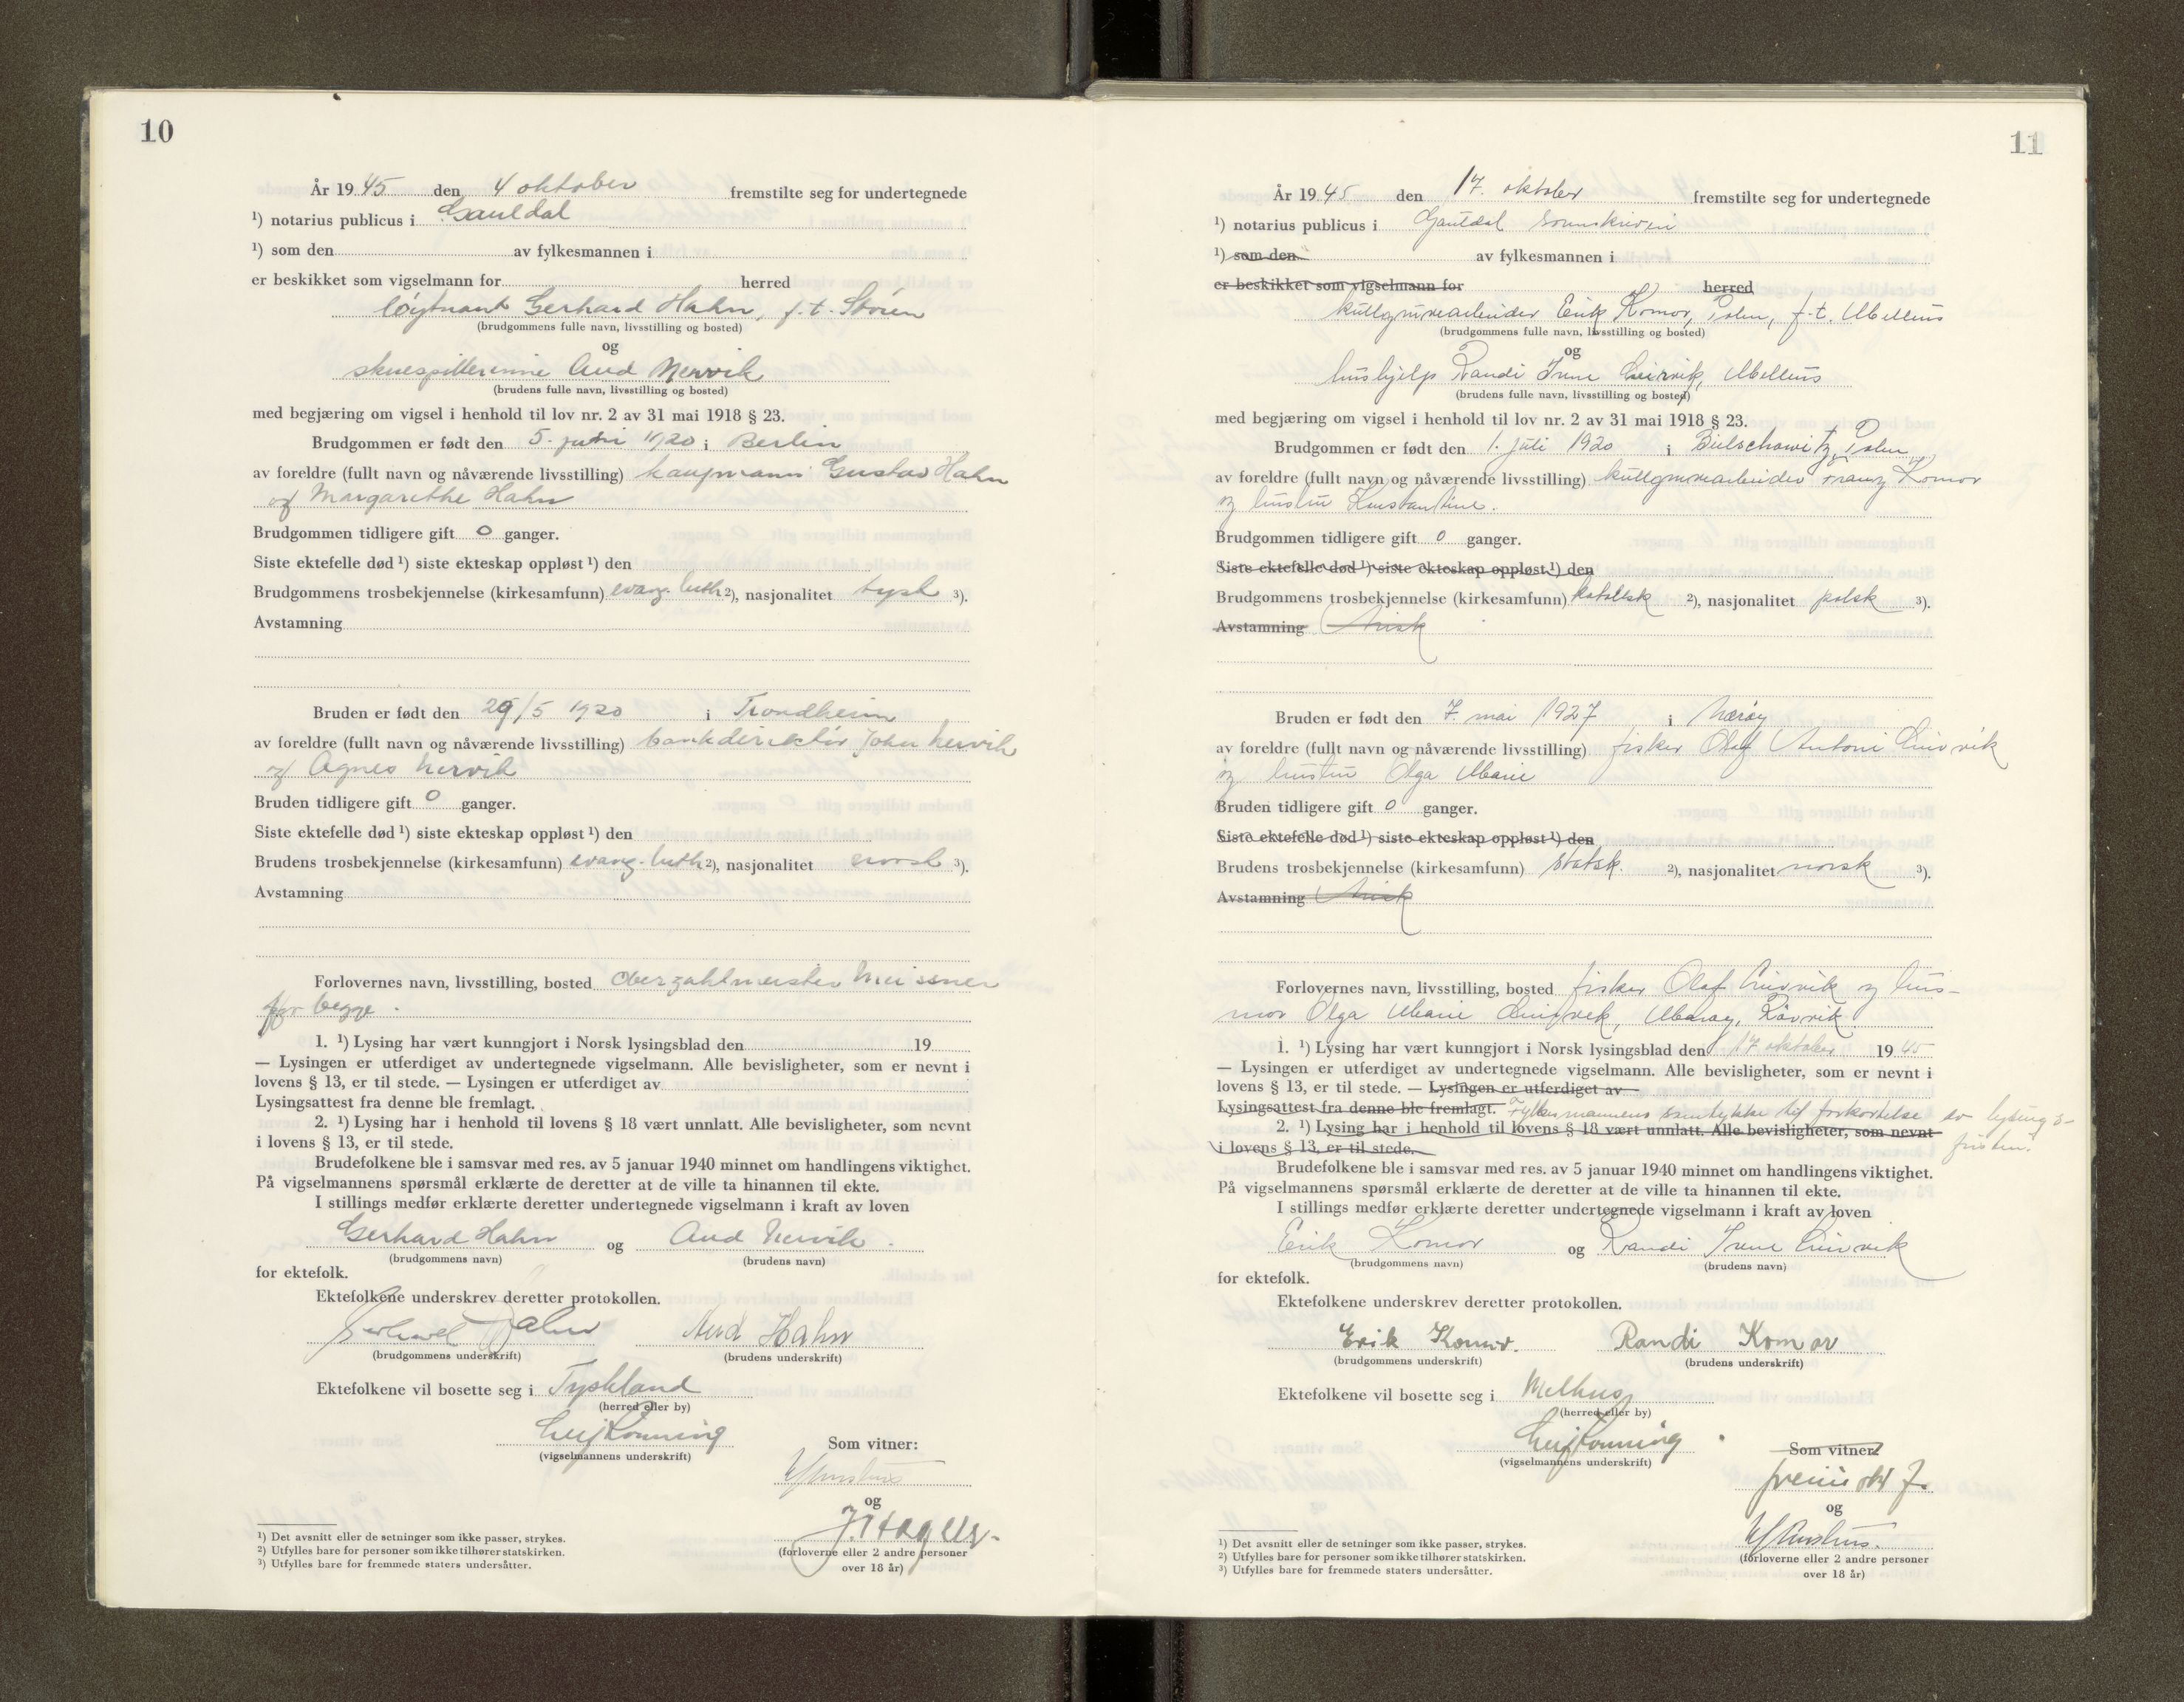 10
År 1945 den 4 oktober fremstilte seg for undertegnede
¹) notarius publicus i Gauldal
¹) som den av fylkesmannen i
er beskikket som vigselmann for herred
løytnant Gerhard Hahn, f.t. Støren
(brudgommens fulle navn, livsstilling og bosted)
og
skuespillerinne Aud Nervik
(brudens fulle navn, livsstilling og bosted)
med begjæring om vigsel i henhold til lov nr. 2 av 31 mai 1918 § 23.
Brudgommen er født den 5. juni 1920 i Berlin
av foreldre (fullt navn og nåværende livsstilling) kaupmann Gustav Hahn
og Margarethe Hahn
Brudgommen tidligere gift 0 ganger.
Siste ektefelle død ¹) siste ekteskap oppløst ¹) den
Brudgommens trosbekjennelse (kirkesamfunn) evang. luth ²), nasjonalitet tysk ³).
Avstamning
Bruden er født den 29/5 1920 i Trondheim
av foreldre (fullt navn og nåværende livsstilling) bankdirektør John Nervik
og Agnes Nervik
Bruden tidligere gift 0 ganger.
Siste ektefelle død ¹) siste ekteskap oppløst ¹) den
Brudens trosbekjennelse (kirkesamfunn) evang. luth ²), nasjonalitet norsk ³).
Avstamning
Forlovernes navn, livsstilling, bosted Oberzahlmeister Meissner
for begge.
1. ¹) Lysing har vært kunngjort i Norsk lysingsblad den 19
— Lysingen er utferdiget av undertegnede vigselmann. Alle bevisligheter, som er nevnt i
lovens § 13, er til stede. — Lysingen er utferdiget av
Lysingsattest fra denne ble fremlagt.
2. ¹) Lysing har i henhold til lovens § 18 vært unnlatt. Alle bevisligheter, som nevnt
i lovens § 13, er til stede.
Brudefolkene ble i samsvar med res. av 5 januar 1940 minnet om handlingens viktighet.
På vigselmannens spørsmål erklærte de deretter at de ville ta hinannen til ekte.
I stillings medfør erklærte deretter undertegnede vigselmann i kraft av loven
Gerhard Hahn og Aud Nervik.
(brudgommens navn) (brudens navn)
for ektefolk.
Ektefolkene underskrev deretter protokollen.
Gerhard Hahn Aud Hahn
(brudgommens underskrift) (brudens underskrift)
Ektefolkene vil bosette seg i Tyskland
(herred eller by)
Leif Rønning
(vigselmannens underskrift) Som vitner:
og
(forloverne eller 2 andre personer
over 18 år)
¹) Det avsnitt eller de setninger som ikke passer, strykes.
²) Utfylles bare for personer som ikke tilhører statskirken.
³) Utfylles bare for fremmede staters undersåtter.
11
År 1945 den 17. oktober fremstilte seg for undertegnede
¹) notarius publicus i Gauldal sorenskriveri
¹) som den av fylkesmannen i
er beskikket som vigselmann for herred
kullgruvearbeider Erik Komor, Polen, f.t. Melhus
(brudgommens fulle navn, livsstilling og bosted)
og
hushjelp Randi Irene Leirvik, Melhus
(brudens fulle navn, livsstilling og bosted)
med begjæring om vigsel i henhold til lov nr. 2 av 31 mai 1918 § 23.
Brudgommen er født den 1. juli 1920 i Bielschowitz, Polen
av foreldre (fullt navn og nåværende livsstilling) kullgruvearbeider Franz Komor
og hustru Konstantine.
Brudgommen tidligere gift 0 ganger.
Siste ektefelle død ¹) siste ekteskap oppløst ¹) den
Brudgommens trosbekjennelse (kirkesamfunn) katolsk ²), nasjonalitet polsk ³).
Avstamning Arisk
Bruden er født den 7. mai 1927 i Nærøy
av foreldre (fullt navn og nåværende livsstilling) fisker Olaf Antoni Leirvik
og hustru Olga Marie
Bruden tidligere gift 0 ganger.
Siste ektefelle død ¹) siste ekteskap oppløst ¹) den
Brudens trosbekjennelse (kirkesamfunn) statsk. ²), nasjonalitet norsk ³).
Avstamning Arisk
Forlovernes navn, livsstilling, bosted fisker Olaf Leirvik og hus-
mor Olga Marie Leirvik, Rørvik
1. ¹) Lysing har vært kunngjort i Norsk lysingsblad den 17 oktober 1945
— Lysingen er utferdiget av undertegnede vigselmann. Alle bevisligheter, som er nevnt i
lovens § 13, er til stede. — Lysingen er utferdiget av
Lysingsattest fra denne ble fremlagt. Fylkesmannens samtykke til forkortelse av lysings-
fristen.
2. ¹) Lysing har i henhold til lovens § 18 vært unnlatt. Alle bevisligheter, som nevnt
i lovens § 13, er til stede.
Brudefolkene ble i samsvar med res. av 5 januar 1940 minnet om handlingens viktighet.
På vigselmannens spørsmål erklærte de deretter at de ville ta hinannen til ekte.
I stillings medfør erklærte deretter undertegnede vigselmann i kraft av loven
Erik Komor og Randi Irene Leirvik
(brudgommens navn) (brudens navn)
for ektefolk.
Ektefolkene underskrev deretter protokollen.
Erik Komor. Randi Komor
(brudgommens underskrift) (brudens underskrift)
Ektefolkene vil bosette seg i Melhus
(herred eller by)
Leif Rønning
(vigselmannens underskrift) Som vitner:
og
(forloverne eller 2 andre personer
over 18 år)
¹) Det avsnitt eller de setninger som ikke passer, strykes.
²) Utfylles bare for personer som ikke tilhører statskirken.
³) Utfylles bare for fremmede staters undersåtter.